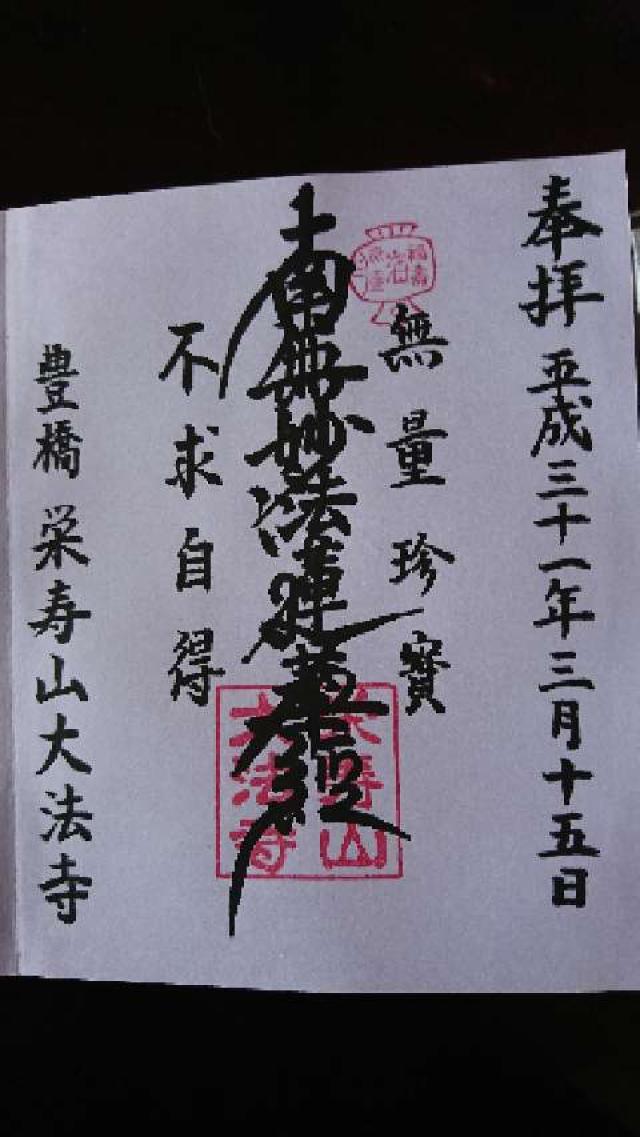 奉拝 平成三十一年三月十五日
無量珍寳
南無妙法蓮華経
不求自得
豊橋 栄寿山大法寺
栄寿山
大法寺
福寿